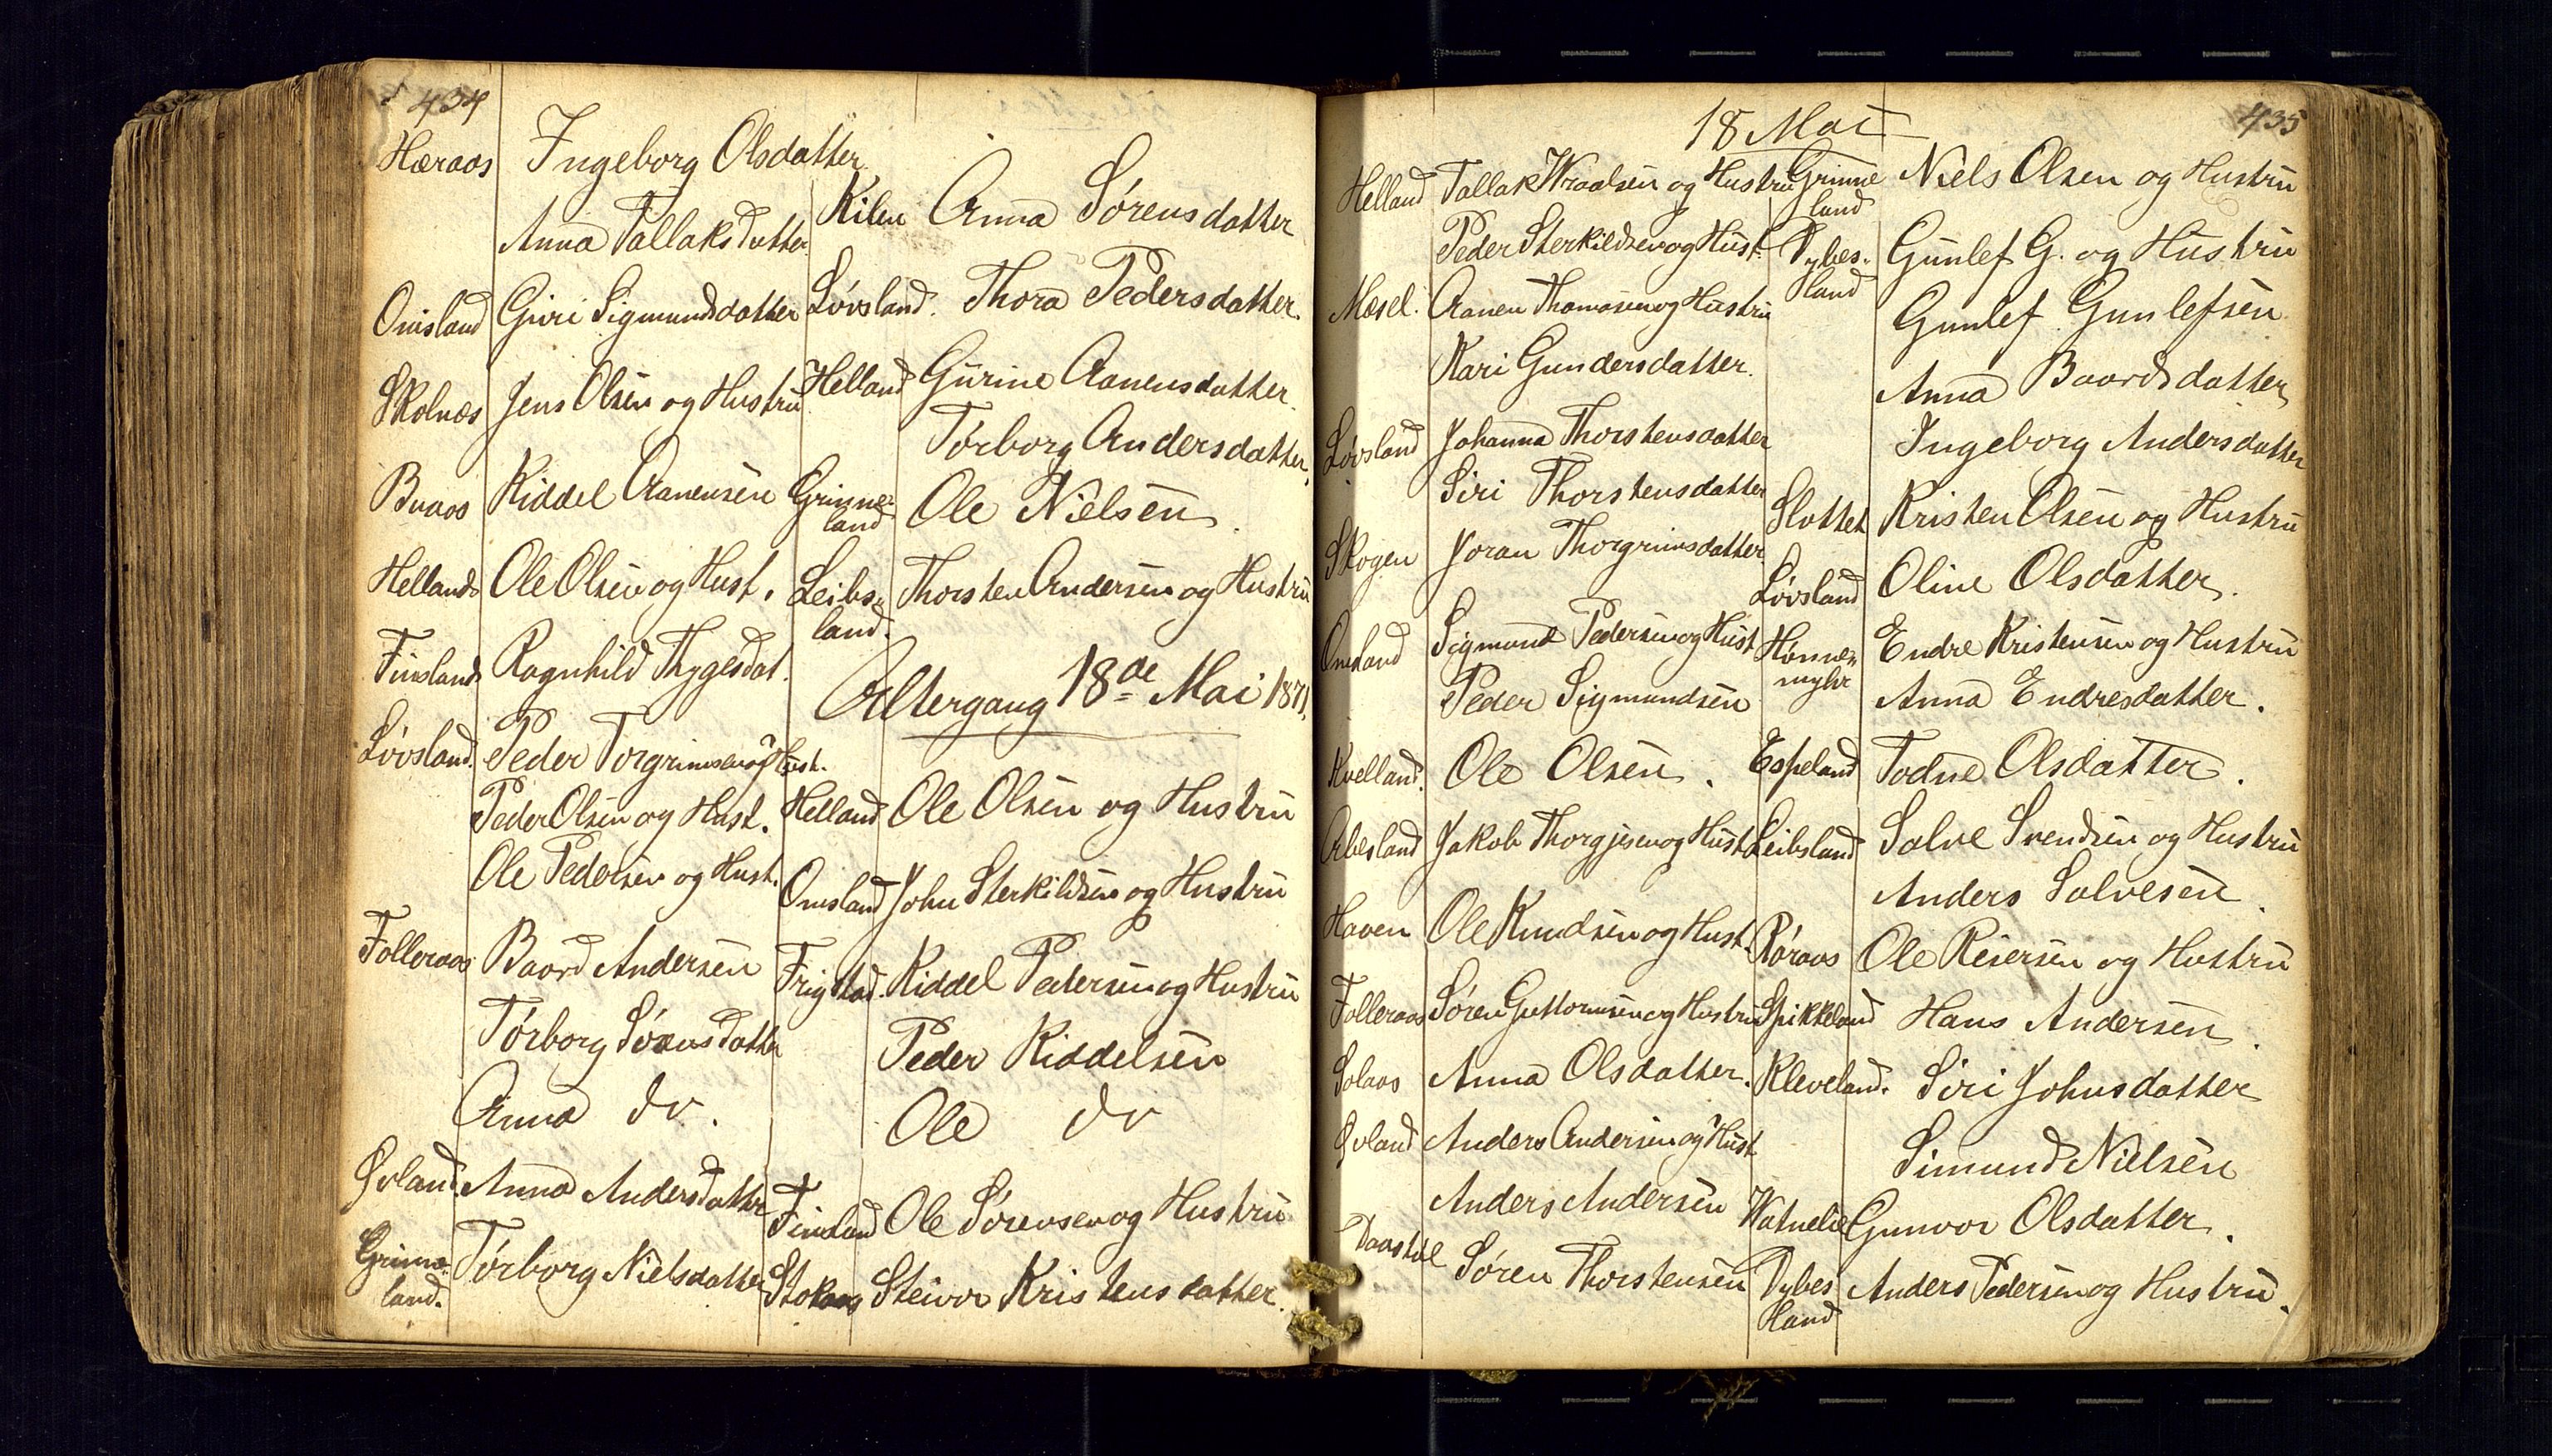 434
Hæraas Ingeborg Olsdatter
Anna Tallaksdatter
Omsland Guri Sigmundsdatter
Skolnæs Jens Olsen og Hustru
Buaas Kiddel Aanensen
Helland Ole Olsen og Hust.
Finsland Ragnhild Thygesdat.
Løvsland. Peder Torgrimsen og Hust.
Peder Olsen og Hust.
Ole Pedersen og Hust.
Folleraas Baard Andersen
Tørborg Sørensdatter
Anna do.
Øvland. Anna Andersdatter
Grinne-
land. Tørborg Nielsdatter
Kilen Anna Sørensdatter
Løvsland. Thora Pedersdatter.
Helland Gurine Aanensdatter.
Tørborg Andersdatter,
Grinne-
land Ole Nielsen.
Leibs-
land. Thorsten Andersen og Hustru
Altergang 18de Mai 1871.
Helland Ole Olsen og Hustru
Omsland John Sterkildsen og Hustru
Frigstad. Kiddel Pedersen og Hustru
Peder Kiddelsen
Ole do
Finsland Ole Sørensen og Hustru
Stokaas Steivor Kristensdatter.
435
18 Mai
Helland Tallak Wraalsen og Hustru
Peder Sterkildsen og Hust.
Mæsel. Aanen Thomasen og Hustru
Kari Gundersdatter.
Løvsland Johanna Thorstensdatter
Siri Thorstensdatter
Skogen Joran Thorgrimsdatter
Omsland Sigmund Pedersen og Hust
Peder Sigmundsen
Kvelland. Ole Olsen.
Abesland Jakob Thorgjusen og Hust
Haven Ole Knudsen og Hust.
Folleraas Søren Guttormsen og Hustru
Solaas Anna Olsdatter.
Øvland Anders Andersen og Hust
Anders Andersen
Daastøl Søren Thorstensen
Grinne
land Niels Olsen og Hustru
Dybes-
land Gunlef G. og Hustru
Gunlef Gunlefsen
Anna Baardsdatter
Ingeborg Andersdatter
Slottet Kristen Olsen og Hustru
Løvsland Oline Olsdatter.
Hønne-
myhr Endre Kristensen og Hustru
Anna Endresdatter.
Espeland Todne Olsdatter.
Leibsland Salve Svendsen og Hustru
Anders Salvesen.
Røraas Ole Reiersen og Hustru
Spikkeland Hans Andersen.
Kleveland. Siri Johnsdatter
Simund Nielsen
Watnelie Gunvor Olsdatter.
Dybes
land Anders Pedersen og Hustru.